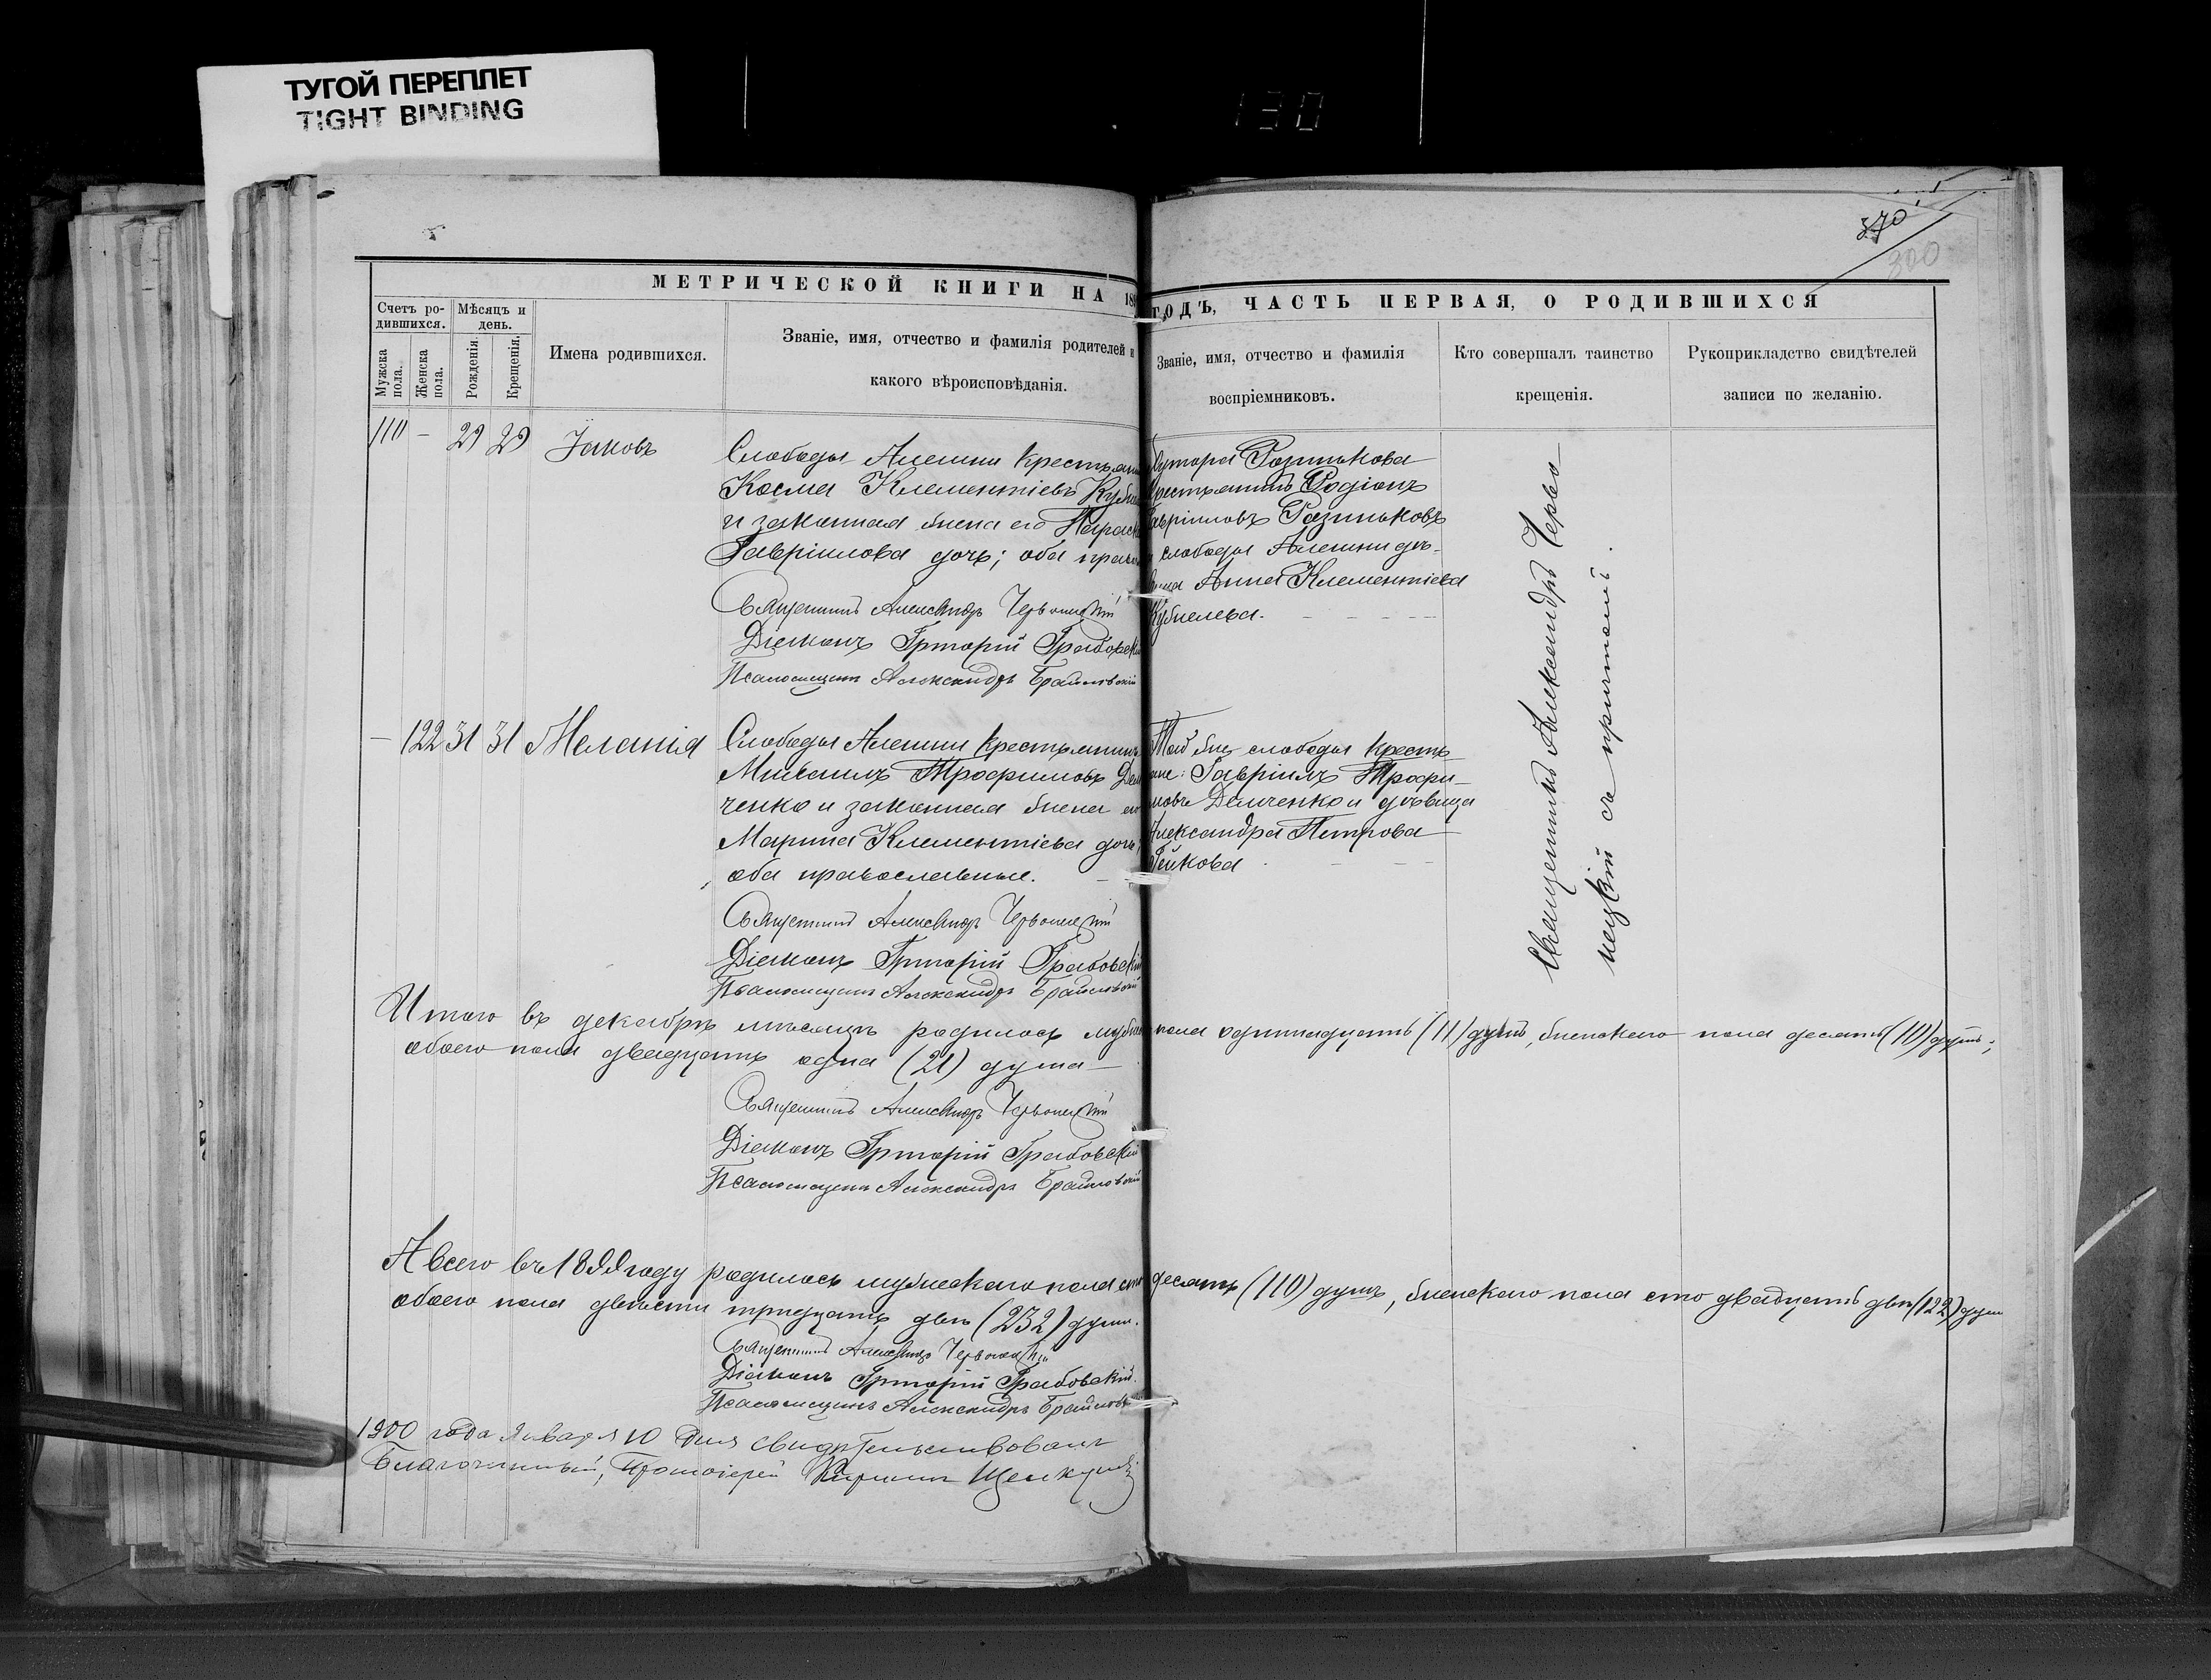 ТУГОЙ ПЕРЕПЛЕТ
TIGHT BINDING
130
370
300
МЕТРИЧЕСКОЙ КНИГИ НА 189
Счетъ ро-
дившихся.
Мѣсяцъ и
день.
Мужска
пола.
Женска
пола.
Рожденія.
Крещенія.
Имена родившихся.
Званіе, имя, отчество и фамилія родителей и
какого вѣроисповѣданія.
110 – 29 29 Іаковъ
Слободы Алешни крестьянин
Косма Климентіевъ
и законная жена его Параск
Гавріилова дочь; оба прав
Священникъ Александръ Червонецкій
Діаконъ Григорій Грабовскій
Псаломщикъ Александръ Брайловскій
– 122 31 31 Меланія
Слободы Алешни крестьянинъ
Михаилъ Трофимовъ Дем
ченко и законная жена его
Марина Климентіева дочь,
оба православные.
Священникъ Александръ Червонецкій
Діаконъ Григорій Грабовскій
Псаломщикъ Александръ Брайловскій
ГОДЪ, ЧАСТЬ ПЕРВАЯ, О РОДИВШИХСЯ
Званіе, имя, отчество и фамилія
воспріемниковъ.
Кто совершалъ таинство
крещенія.
Рукоприкладство свидѣтелей
записи по желанію.
Хутора Разинькова
крестьянинъ Родіонъ
Гавріиловъ Разиньковъ
и слободы Алешни дѣ-
вица Анна Климентіева
Той же слободы кресть
яне: Гавріилъ Трофи-
мовъ Демченко и дѣвица
Александра Петрова
Священникъ Александръ Черво-
нецкій съ причтомъ.
Итого въ декабрѣ мѣсяцѣ родилось мужск пола одиннадцать (11) душъ, женскаго пола десять (10) душъ;
обоего пола двадцать одна (21) душа
Священникъ Александръ Червонецкій
Діаконъ Григорій Грабовскій
Псаломщикъ Александръ Брайловскій
А всего въ 1899 году родилось мужескаго пола сто десять (110) душъ, женскаго пола сто двадцать двѣ (122) души
обоего пола двѣсти тридцать двѣ (232) души.
Священникъ Александръ Червонецкій
Діаконъ Григорій Грабовскій.
Псаломщикъ Александръ Брайловскій
1900 года Января 10 дня свидѣтельствовалъ
Благочинный, Протоіерей Кириллъ